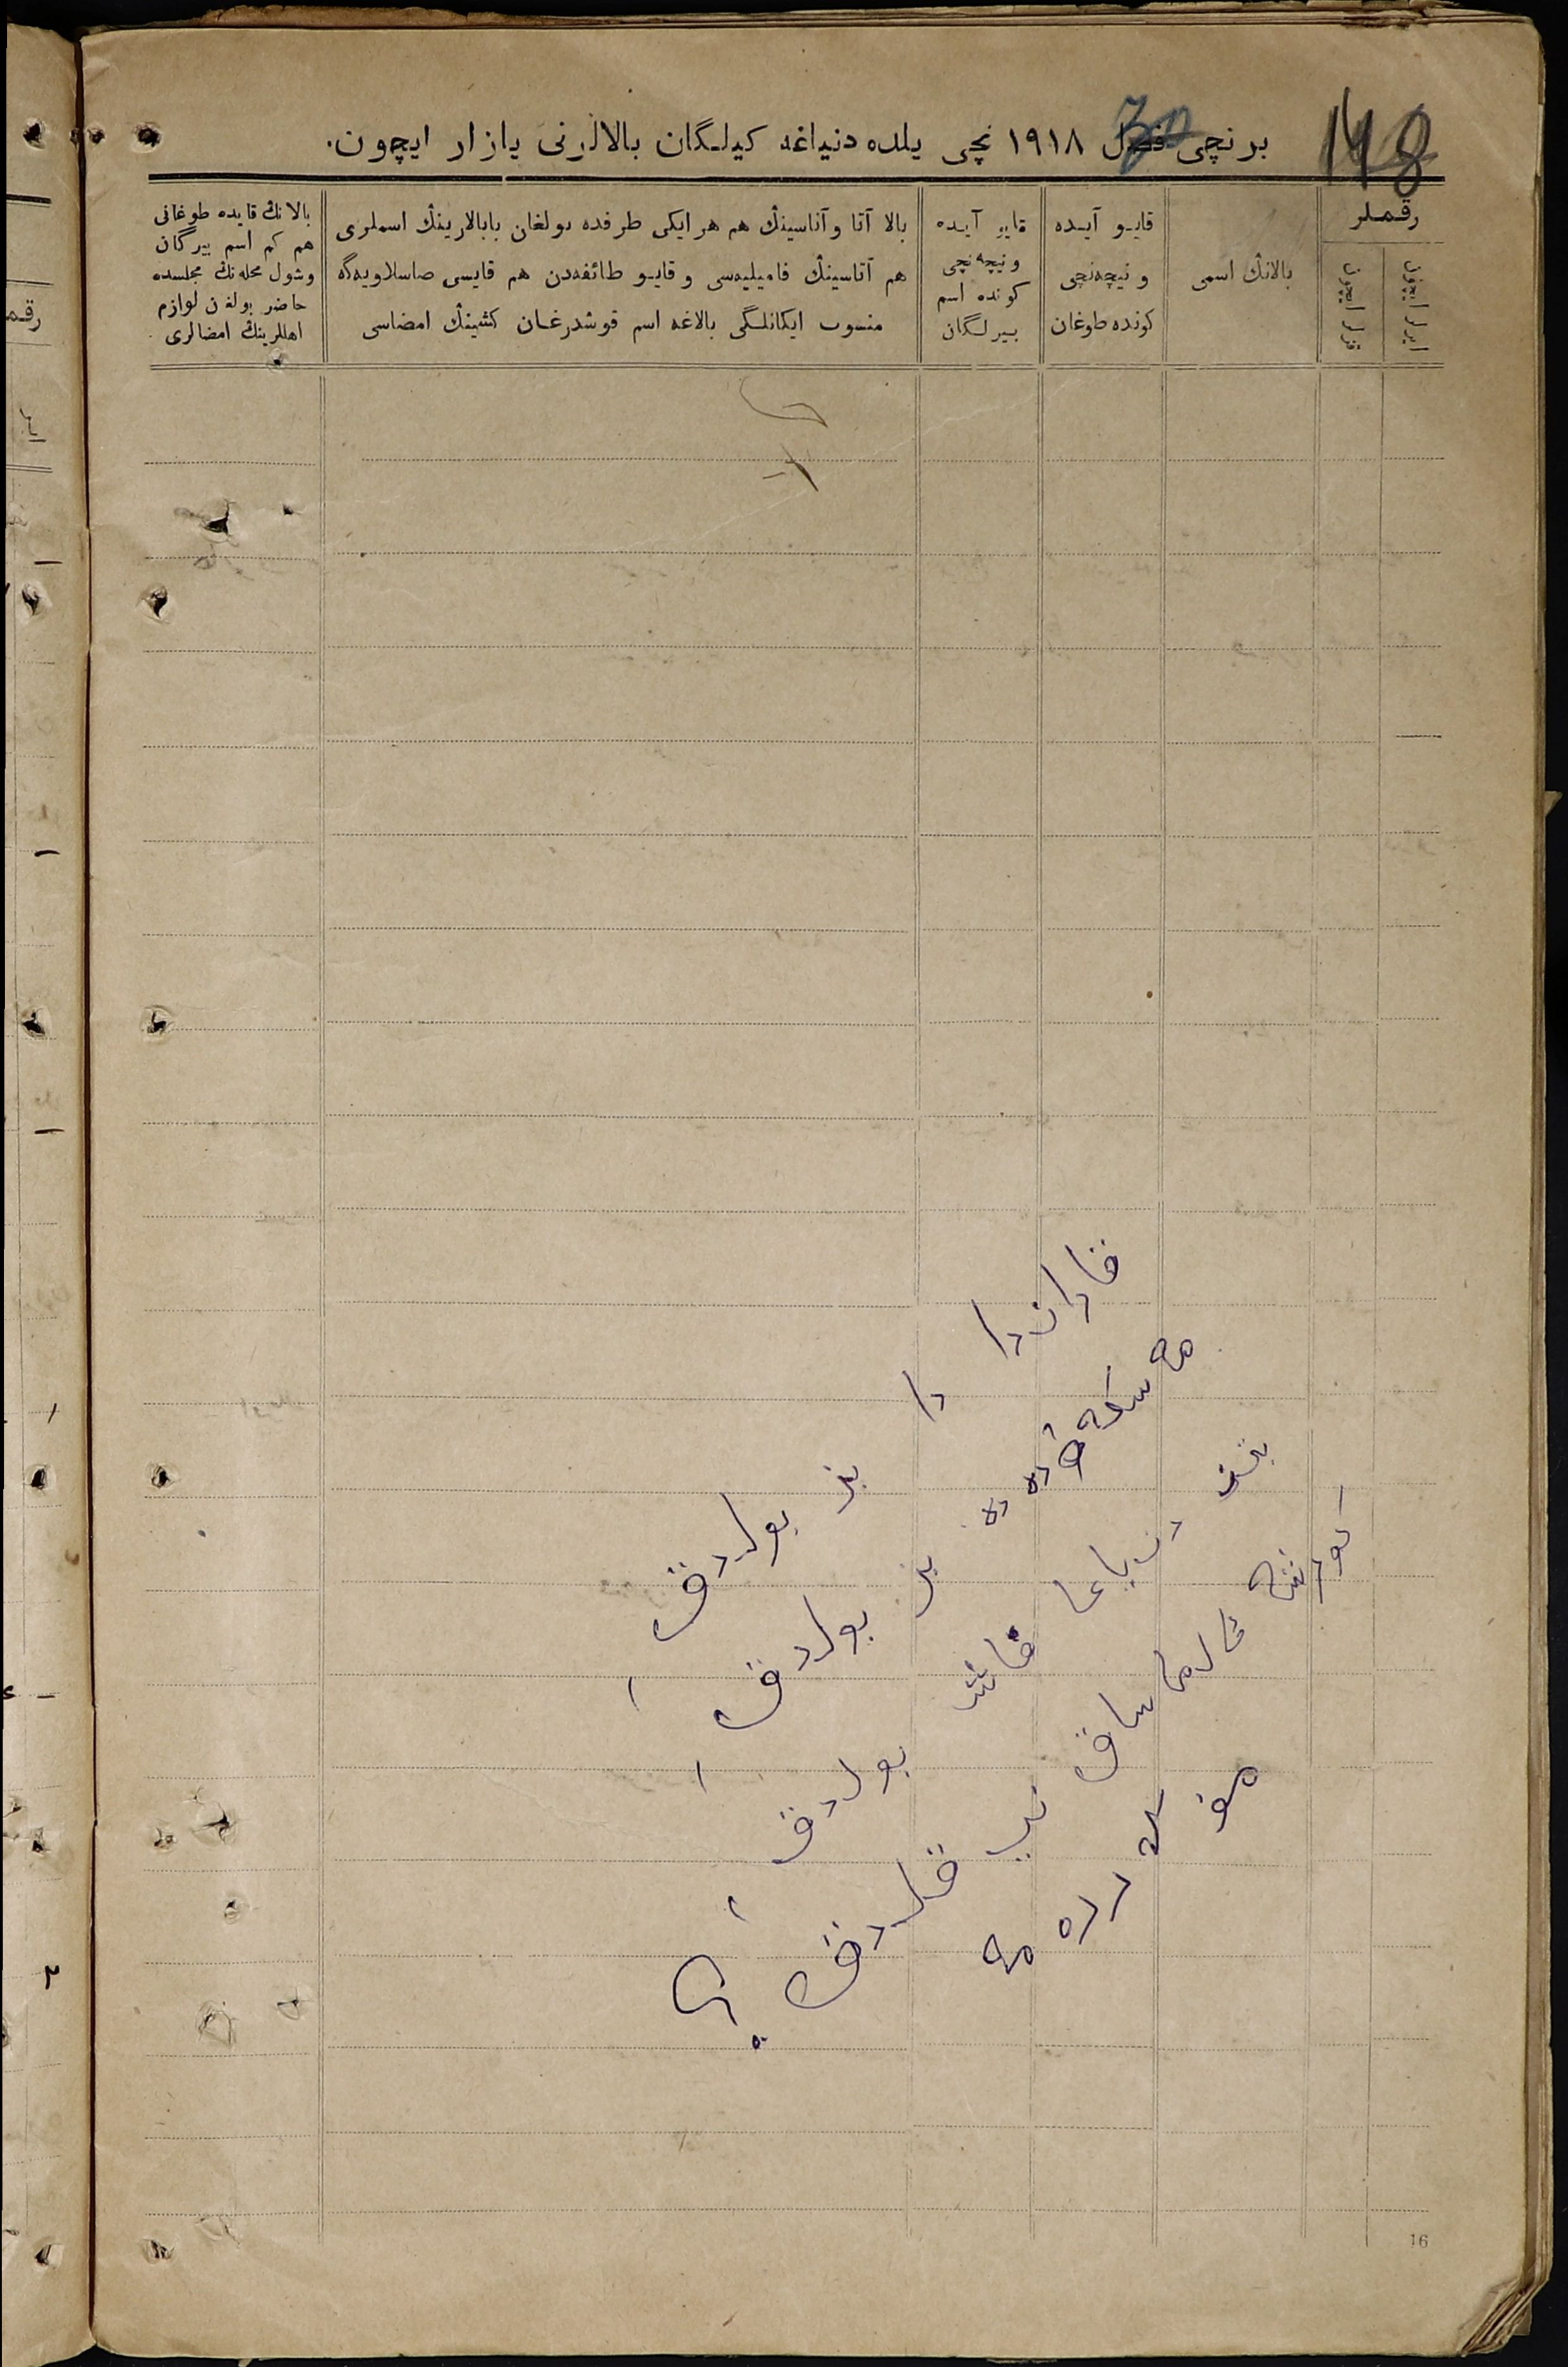 148
برنچی فصل ١٩١٨ نچی یلده دنیاغه کیلگان بالالرنی یازار ایچون.
رقملر
ایرلر ایچون
قزلر ایچون
بالانڭ اسمی
قایو آیده
و نیچه‌نچی
كونده طوغان
قایو آیده
و نیچه‌نچی
كونده اسم
بیرلگان
بالا آتا و آناسینڭ هم هر ایکی طرفده بولغان بابالارینڭ اسملری
هم آتاسینڭ فامیلیه‌سی و قایو طائفه‌دن هم قایسی صاسلاویه‌گه
منسوب ایكانلگی بالاغه اسم قوشدرغان كشینڭ امضاسی
بالانڭ قایده طوغانی
هم کم اسم بیرگان
وشول محله‌نڭ مجلسده
حاضر بولغان لوازم
اهللرینڭ امضالری
قازاندا دا بز بولدق،
مه سكه‌ۋده ده بز بولدق،
بز دنیاغا قاش بولدق،
كورشه الماساق نیب قلدق؟
16